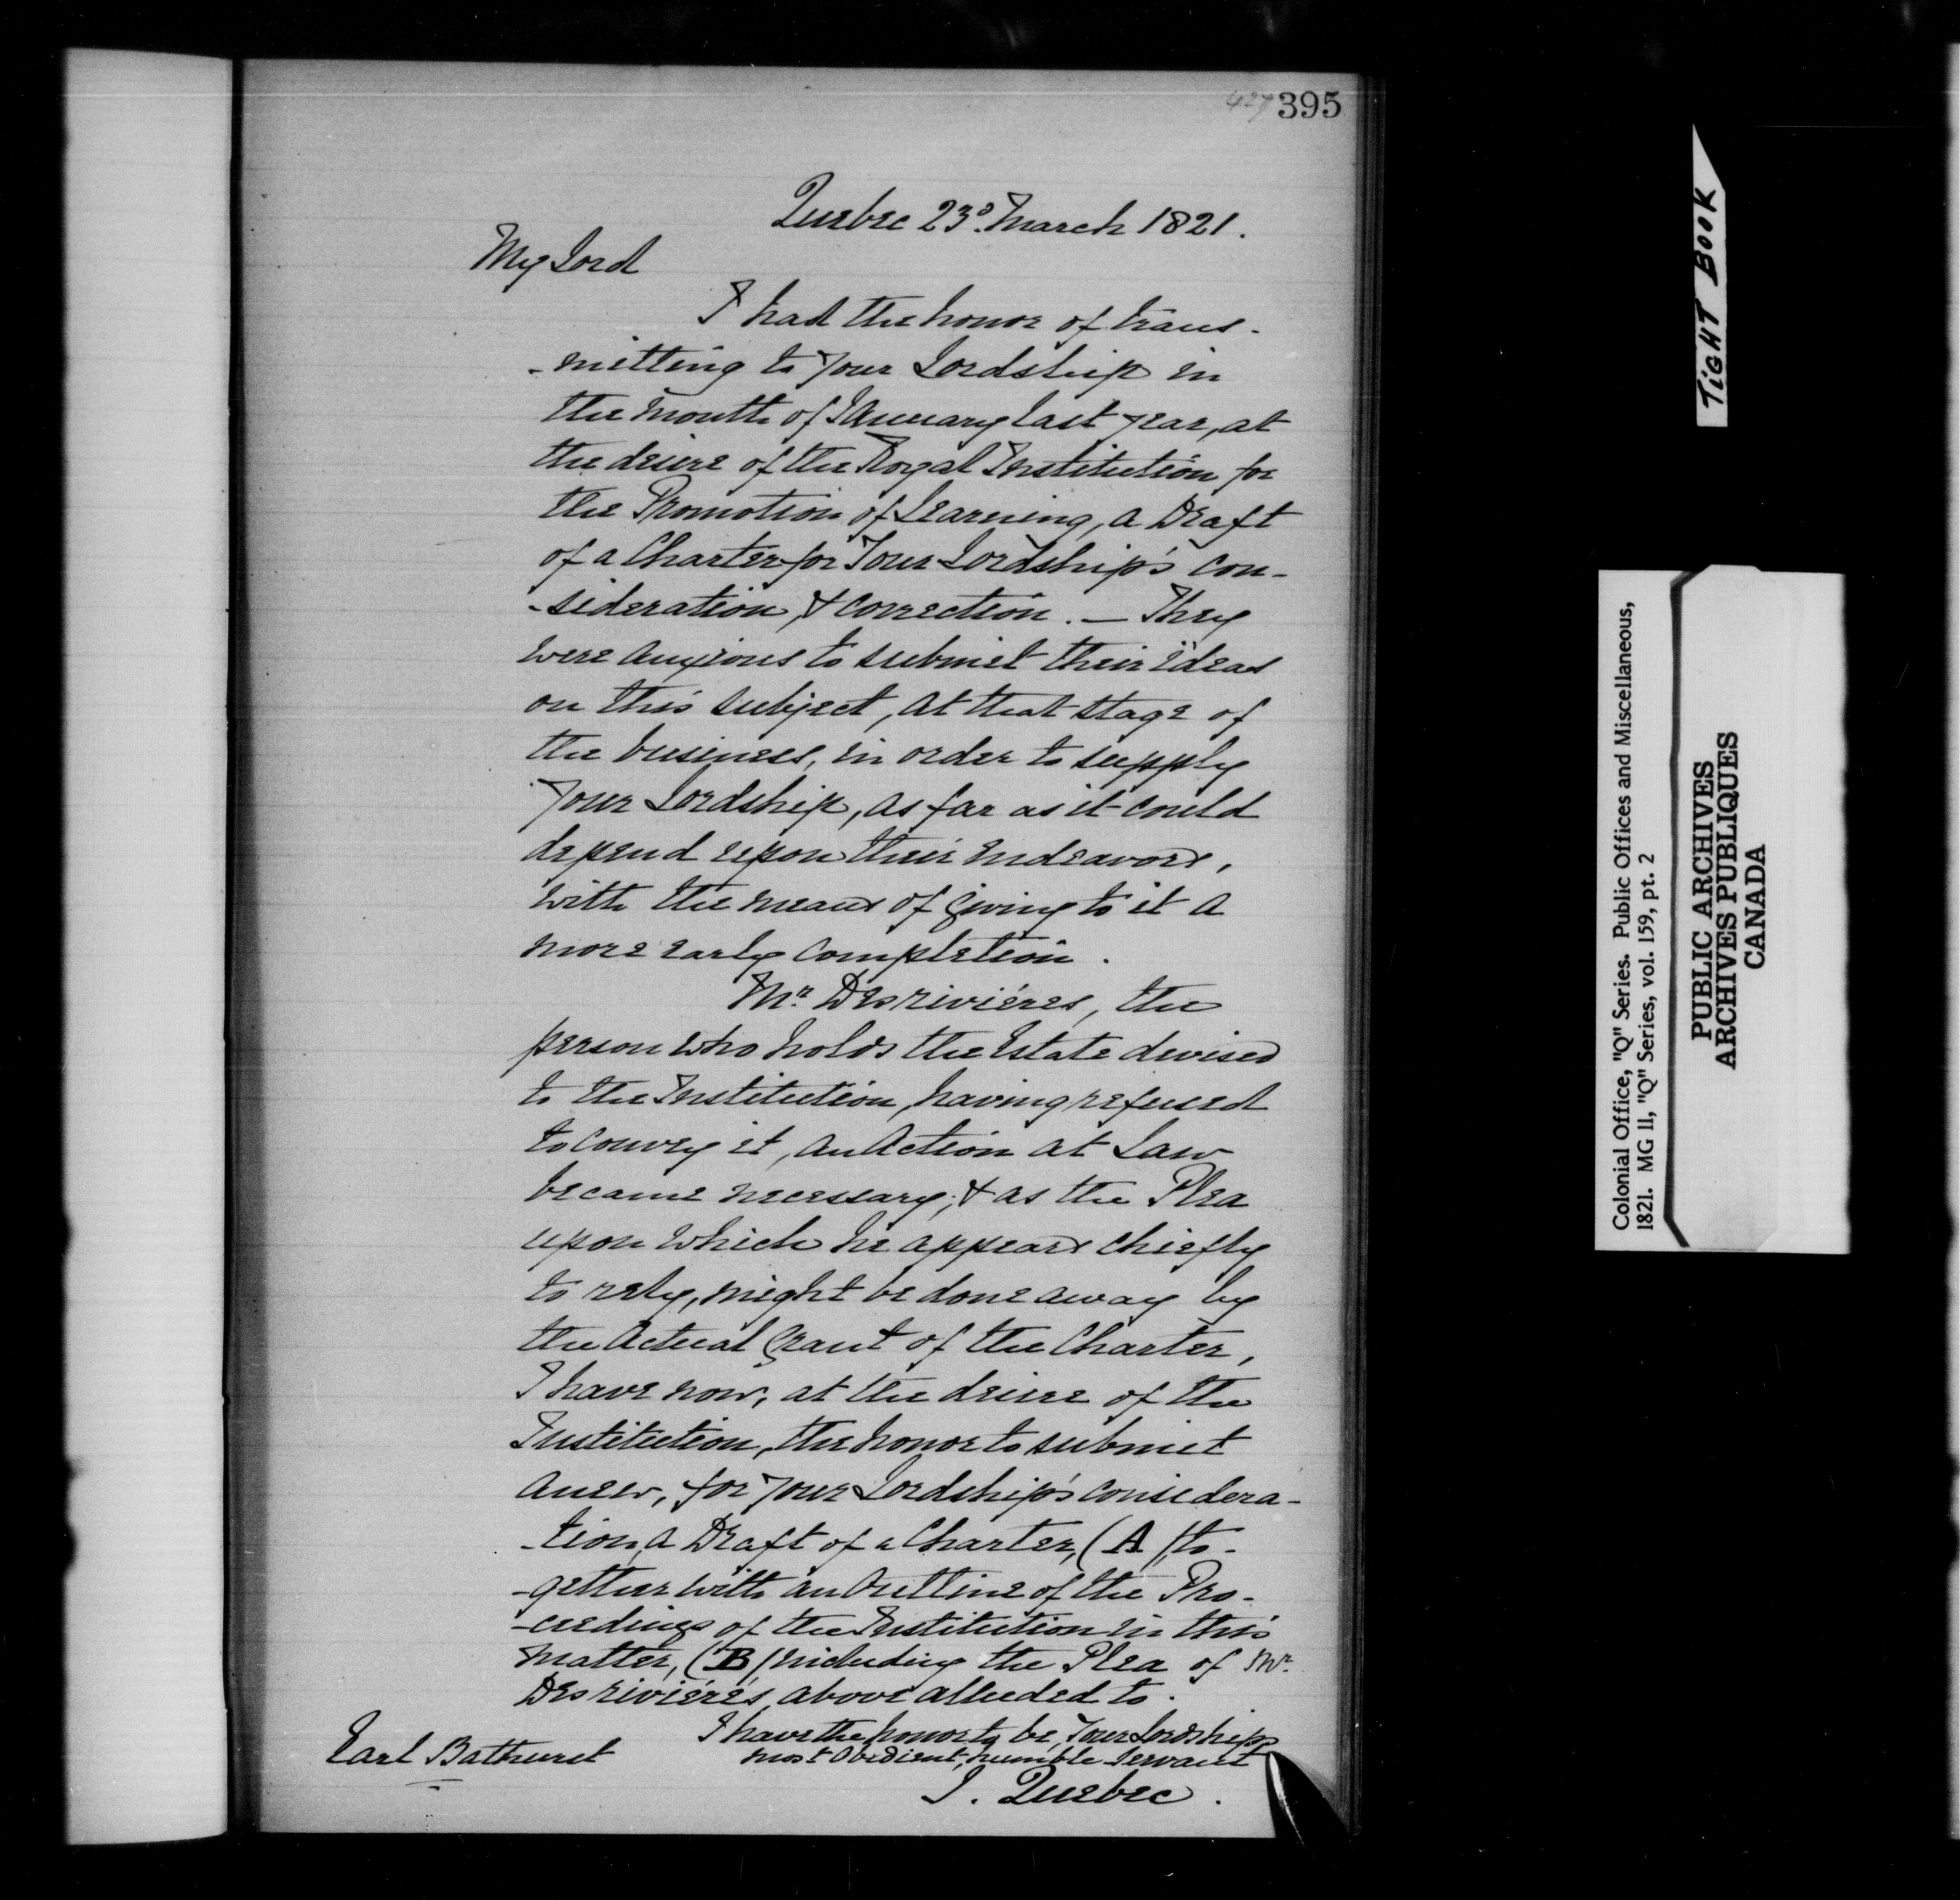 427 395
Quebec 23d. March 1821.
My Lord
I had the honor of trans-
-mitting to Your Lordship in
the month of January last year, at
the desire of the Royal Institution for
the Promotion of Learning, a Draft
of a Charter for Your Lordship's con-
-sideration, & correction. — They
were anxious to submit their ideas
on this subject, at that stage of
the business, in order to supply
Your Lordship, as far as it could
depend upon their endeavors,
with the means of giving to it a
more early completion.
Mr. Desrivières, the
person who holds the Estate devised
to the Institution, having refused
to convey it, an Action at Law
became necessary; & as the Plea
upon which he appears chiefly
to rely, might be done away by
the Actual Grant of the Charter,
I have now, at the desire of the
Institution, the honor to submit
anew, for Your Lordship's considera-
-tion, a Draft of a Charter, (A), to-
-gether with an Outline of the Pro-
-ceedings of the Institution in this
matter, (B) including the Plea of Mr.
Desrivières above alluded to.
I have the honor to be, Your Lordships
most Obedient, humble Servant
Earl Bathurst
J. Quebec.
TIGHT BOOK
Colonial Office, "Q" Series. Public Offices and Miscellaneous,
1821. MG 11, "Q" Series, vol. 159, pt. 2
PUBLIC ARCHIVES
ARCHIVES PUBLIQUES
CANADA